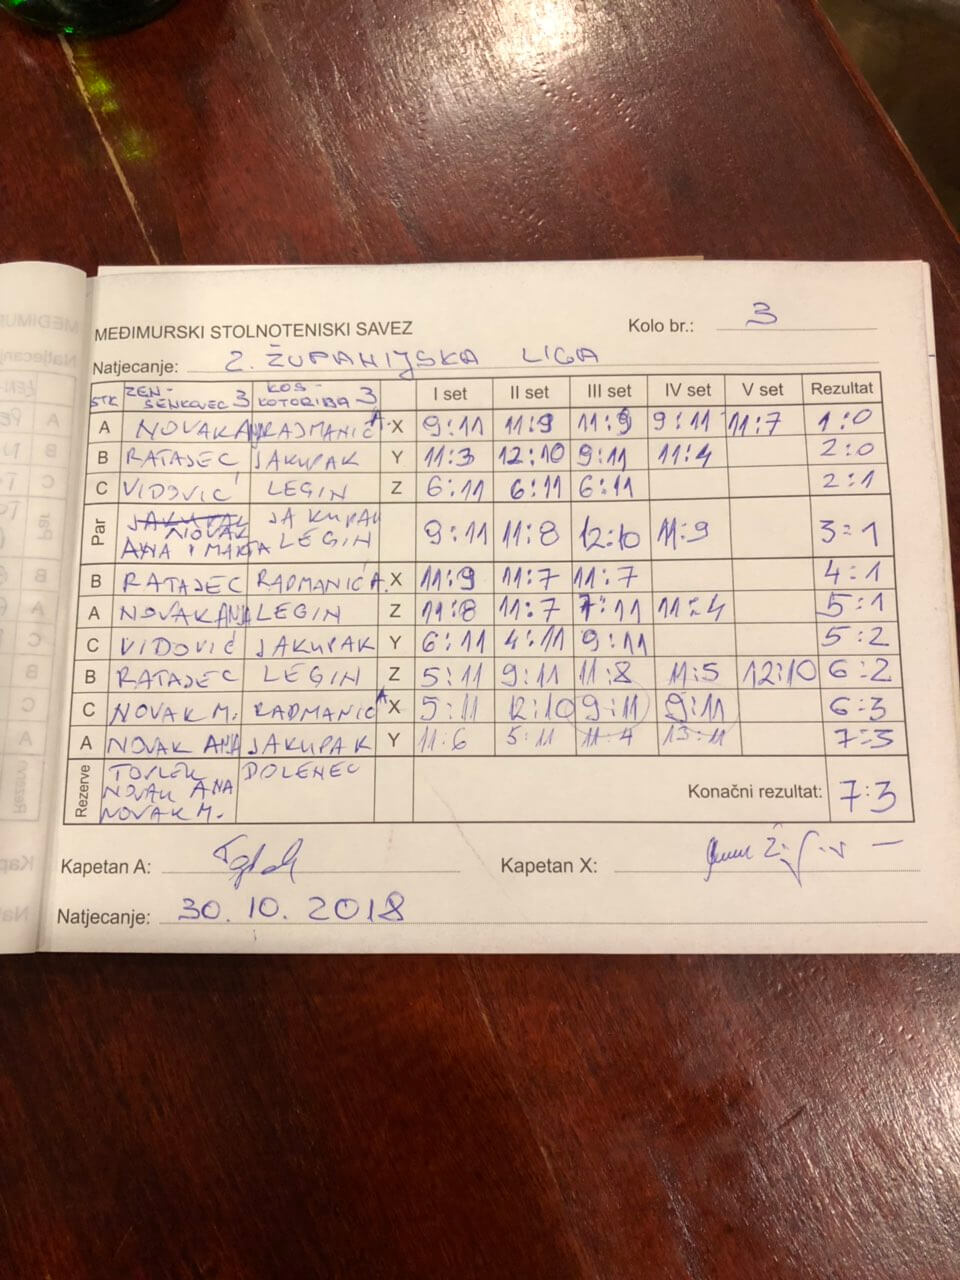 MEĐIMURSKI STOLNOTENISKI SAVEZ
Kolo br.: 3
Natjecanje: 2. ŽUPANIJSKA LIGA
STK ZEN-SENKOVEC 3 KOS-KOTORIBA 3 I set II set III set IV set V set Rezultat
A NOVAK ANA RADMANIĆ A. X 9:11 11:9 11:9 9:11 11:7 1:0
B RATAJEC JAKUPAK Y 11:3 12:10 9:11 11:4 2:0
C VIDOVIĆ LEGIN Z 6:11 6:11 6:11 2:1
Par NOVAK ANA I MARTA JAKUPAK LEGIN 9:11 11:8 12:10 11:9 3:1
B RATAJEC RADMANIĆ A. X 11:9 11:7 11:7 4:1
A NOVAK ANA LEGIN Z 11:8 11:7 7:11 11:4 5:1
C VIDOVIĆ JAKUPAK Y 6:11 4:11 9:11 5:2
B RATAJEC LEGIN Z 5:11 9:11 11:8 11:5 12:10 6:2
C NOVAK M. RADMANIĆ A X 5:11 12:10 9:11 9:11 6:3
A NOVAK ANA JAKUPAK Y 11:6 5:11 11:4 13:11 7:3
Rezerve DOLENEC
NOVAK ANA
NOVAK M.
Konačni rezultat: 7:3
Kapetan A:
Kapetan X:
Natjecanje: 30. 10. 2018